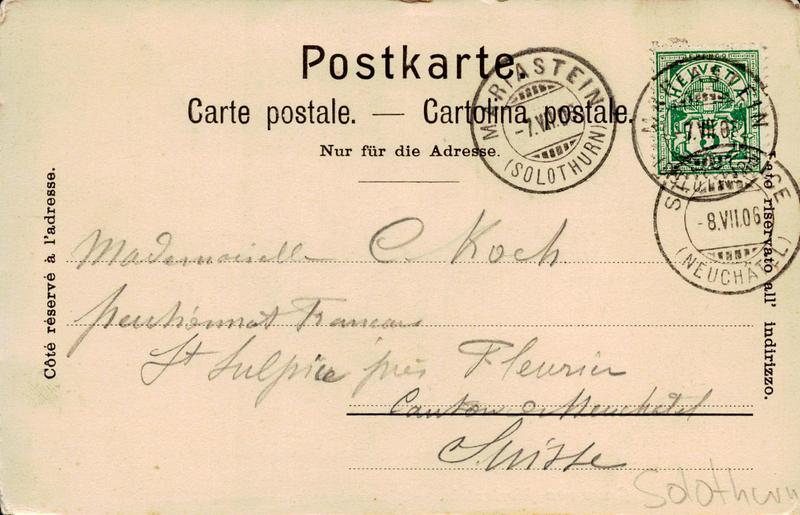 Postkarte.
Carte postale. — Cartolina postale.
Nur für die Adresse.
Côté réservé à l'adresse.
Lato riservato all' indirizzo.
MARIASTEIN
-7.VII.06
(SOLOTHURN)
HELVETIA
5
MARIASTEIN
7.VII.06
(SOLOTHURN)
ST SULPICE
-8.VII.06
(NEUCHÂTEL)
Mademoiselle C. Koch
Français
St Sulpice près Fleurier
Canton de Neuchâtel
Suisse
Solothurn